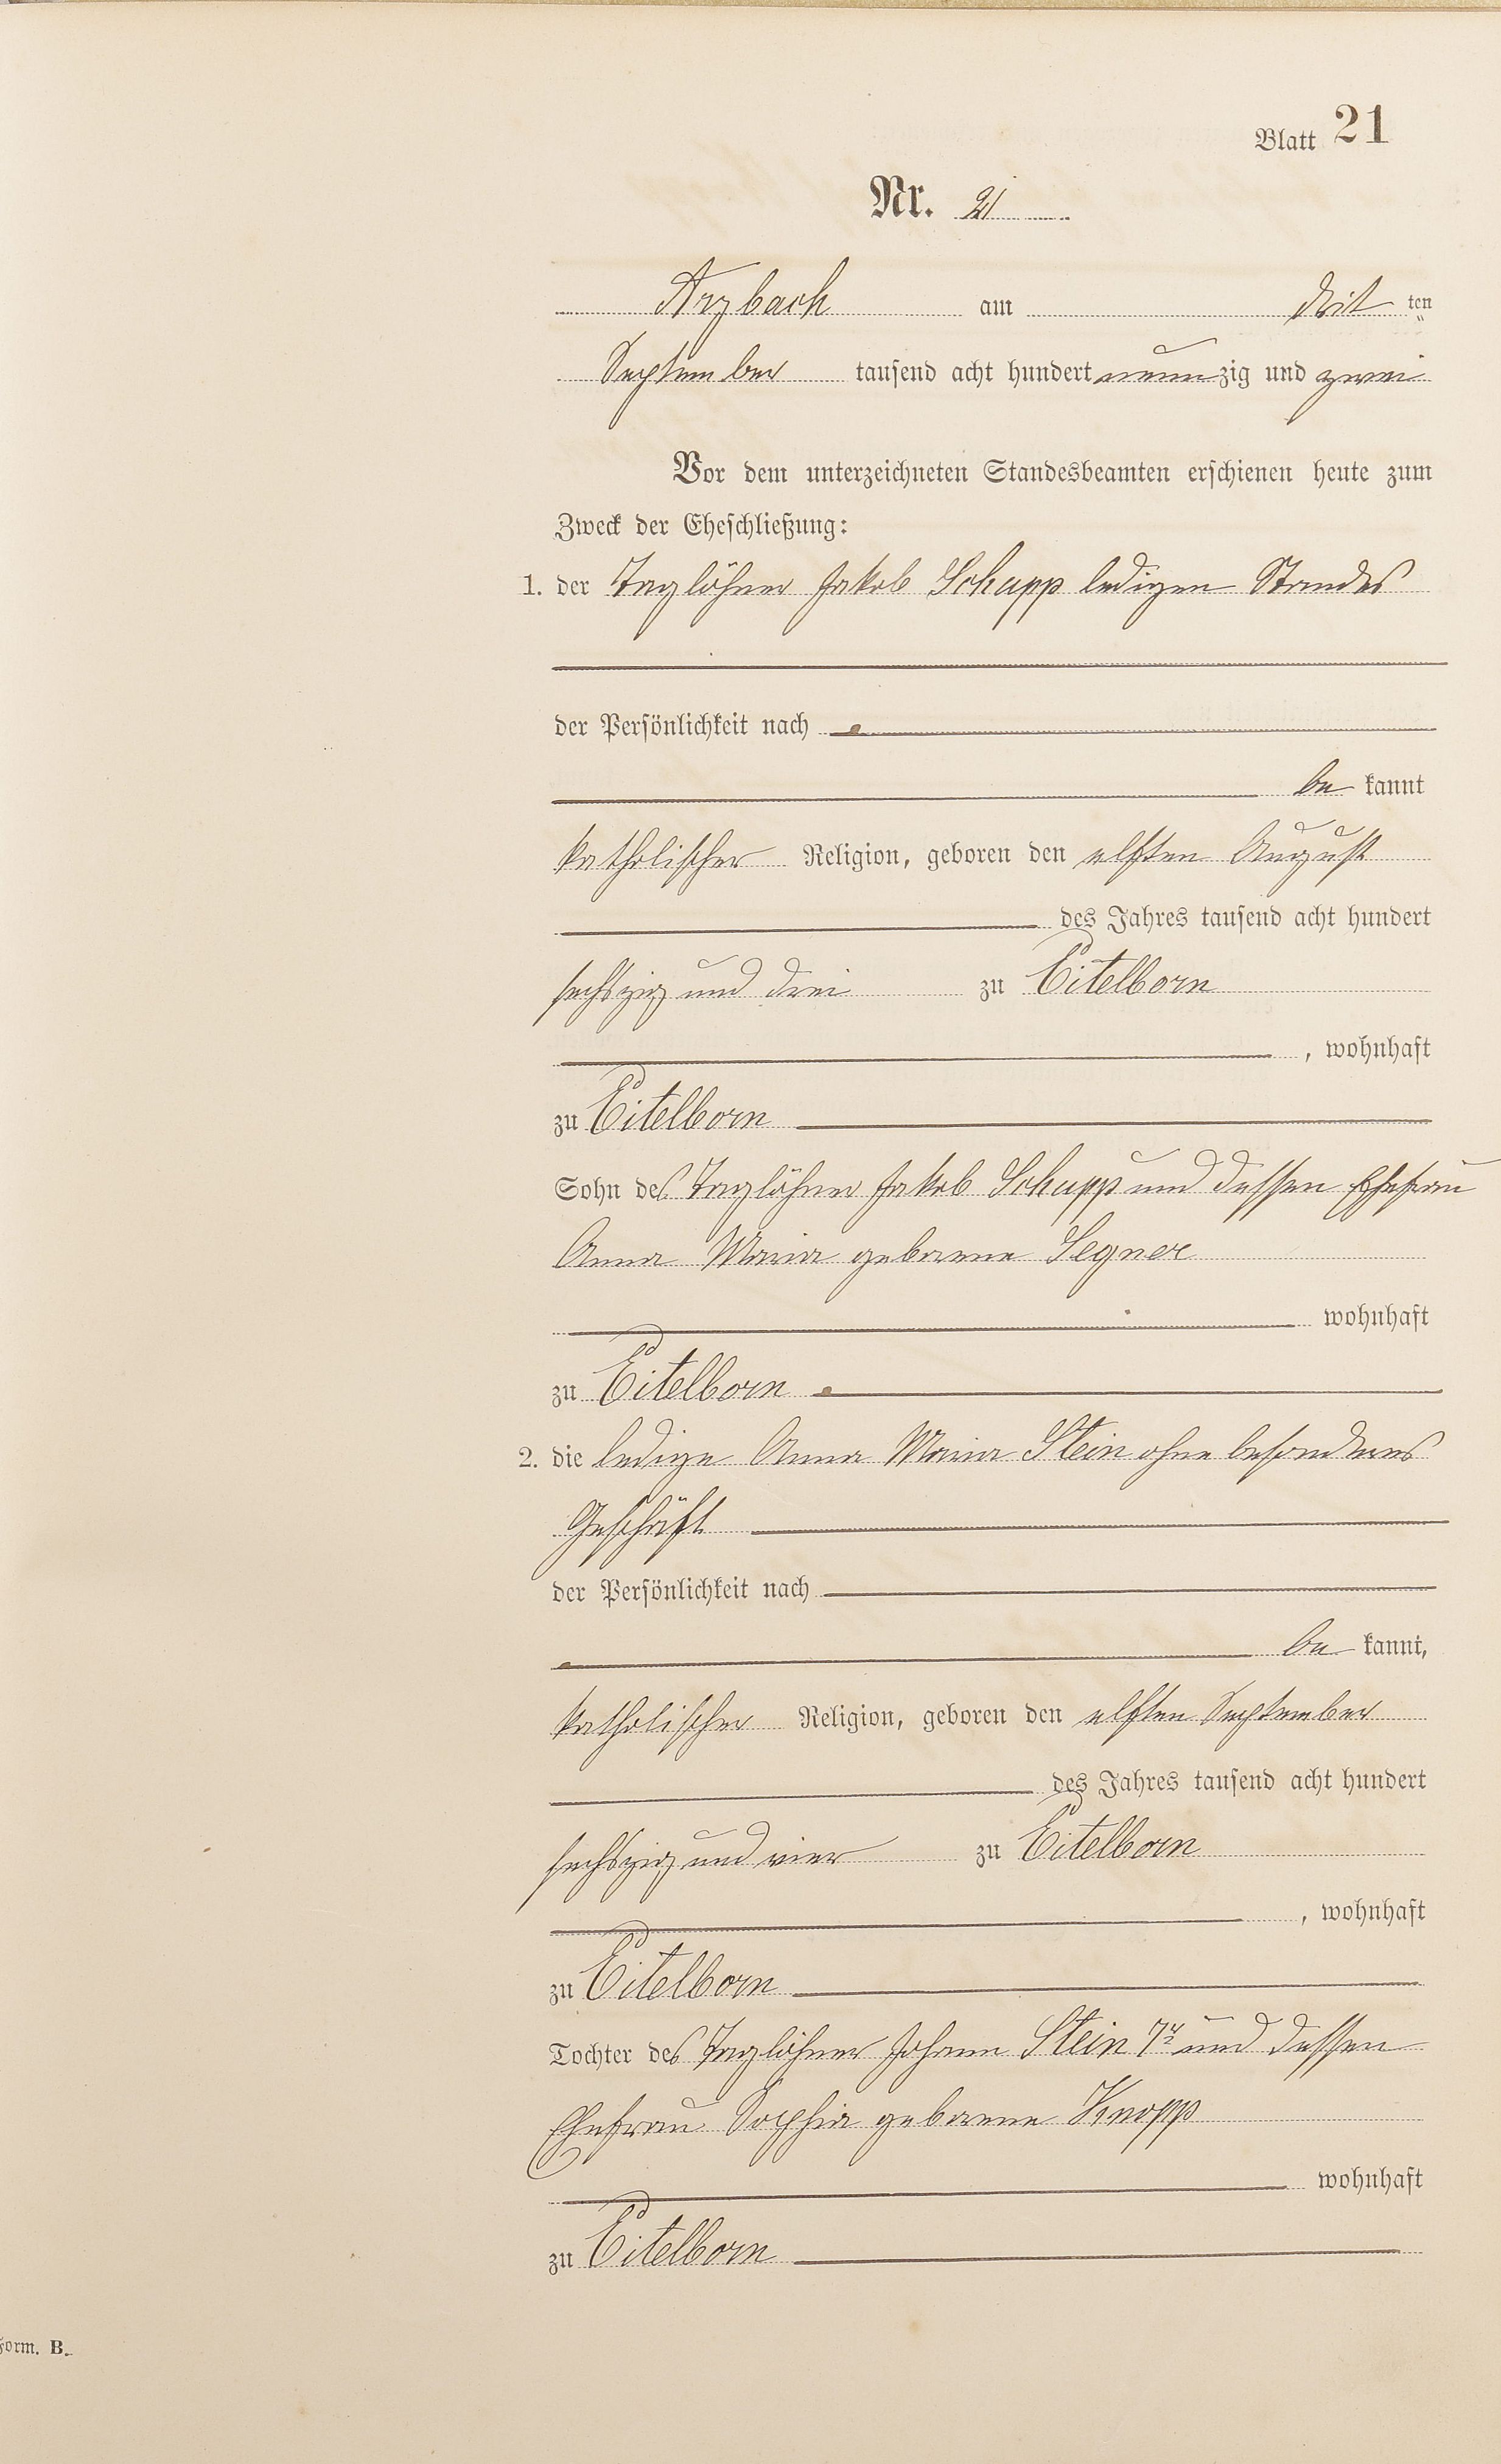 Blatt 21
Nr. 21
Arzbach am drit ten
September tausend acht hundert neunzig und zwei
Vor dem unterzeichneten Standesbeamten erschienen heute zum
Zweck der Eheschließung:
1. der Taglöhner Jakob Schupp ledigen Standes
der Persönlichkeit nach
be kannt
katholischer Religion, geboren den elften August
des Jahres tausend acht hundert
sechszig und drei zu Eitelborn
, wohnhaft
zu Eitelborn
Sohn des Taglöhner Jakob Schupp und dessen Ehefrau
Anna Maria geborene Segner
wohnhaft
zu Eitelborn
2. die ledige Anna Maria Stein ohne besonderes
Geschäft
der Persönlichkeit nach
be kannt,
katholischer Religion, geboren den elften September
des Jahres tausend acht hundert
sechszig und vier zu Eitelborn
, wohnhaft
zu Eitelborn
Tochter des Taglöhner Johann Stein und dessen
Ehefrau Sophia geborene Knopp
wohnhaft
zu Eitelborn
Form. B.